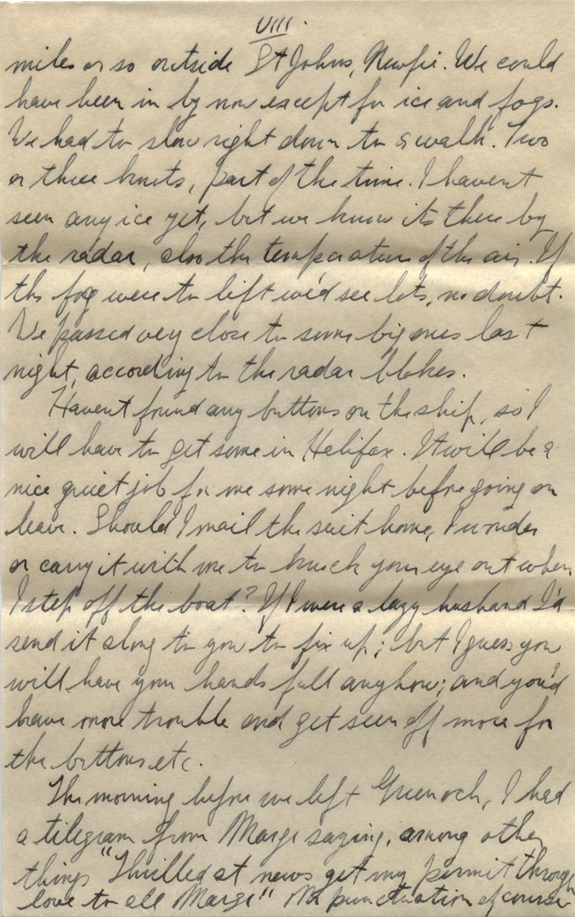 VIII.
miles or so outside St Johns, Newfie. We could
have been in by now except for ice and fogs.
We had to slow right down to a walk. Two
or three knots, part of the time. I havent
seen any ice yet, but we know its there by
the radar, also the temperature of the air. If
the fog were to lift we'd see lots, no doubt.
We passed very close to some big ones last
night, according to the radar blokes.
Havent found any buttons on the ship, so I
will have to get some in Halifax. It will be a
nice quiet job for me some night before going on
leave. Should I mail the suit home, I wonder
or carry it with me to knock your eye out when
I step off the boat? If I were a lazy husband I'd
send it along to you to fix up; but I guess you
will have your hands full anyhow; and you'd
have more trouble and get seen off more for
the buttons etc.
The morning before we left Greenoch, I had
a telegram from Marge saying, among other
things "Thrilled at news get my permit through
love to all Marge" No punctuation of course